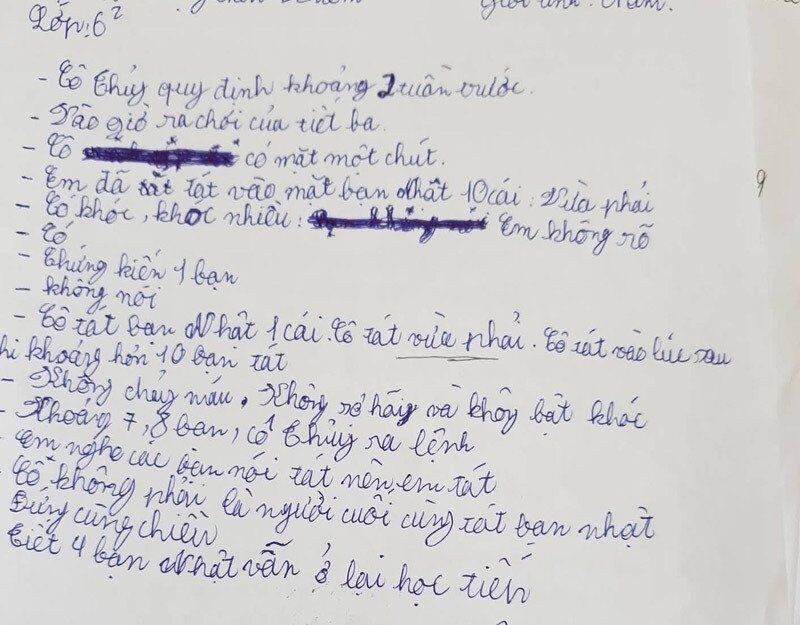 Lớp: 6²
- Cô Thủy quy định khoảng 2 tuần trước.
- Vào giờ ra chơi của tiết ba.
- Cô có mặt một chút.
- Em đã tát vào mặt bạn Nhật 10 cái: Vừa phải
- Có khóc, khóc nhiều: Em không rõ
- Có
- Chứng kiến 1 bạn
- không nói
- Cô tát bạn Nhật 1 cái. Cô tát vừa phải. Cô tát vào lúc sau
khi khoảng hơn 10 bạn tát
- Không chảy máu. Không và không bật khóc
- Khoảng 7, 8 bạn, cô Thủy ra lệnh
- Em nghe các bạn nói tát nên em tát
- Cô không phải là người cuối cùng tát bạn nhật
Đứng cùng chiều
Tiết 4 bạn Nhật vẫn ở lại học tiến
9